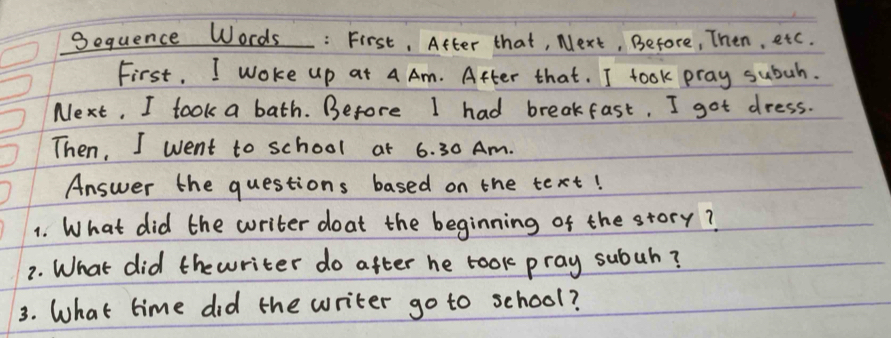 Sequence Words : First, After that, Next, Before, Then, etc.
First, I woke up at 4 Am. After that, I took pray subuh.
Next, I took a bath. Before I had breakfast, I got dress.
Then, I went to school at 6.30 Am.
Answer the questions based on the text!
1. What did the writer do at the beginning of the story?
2. What did the writer do after he took pray subuh?
3. What time did the writer go to school?